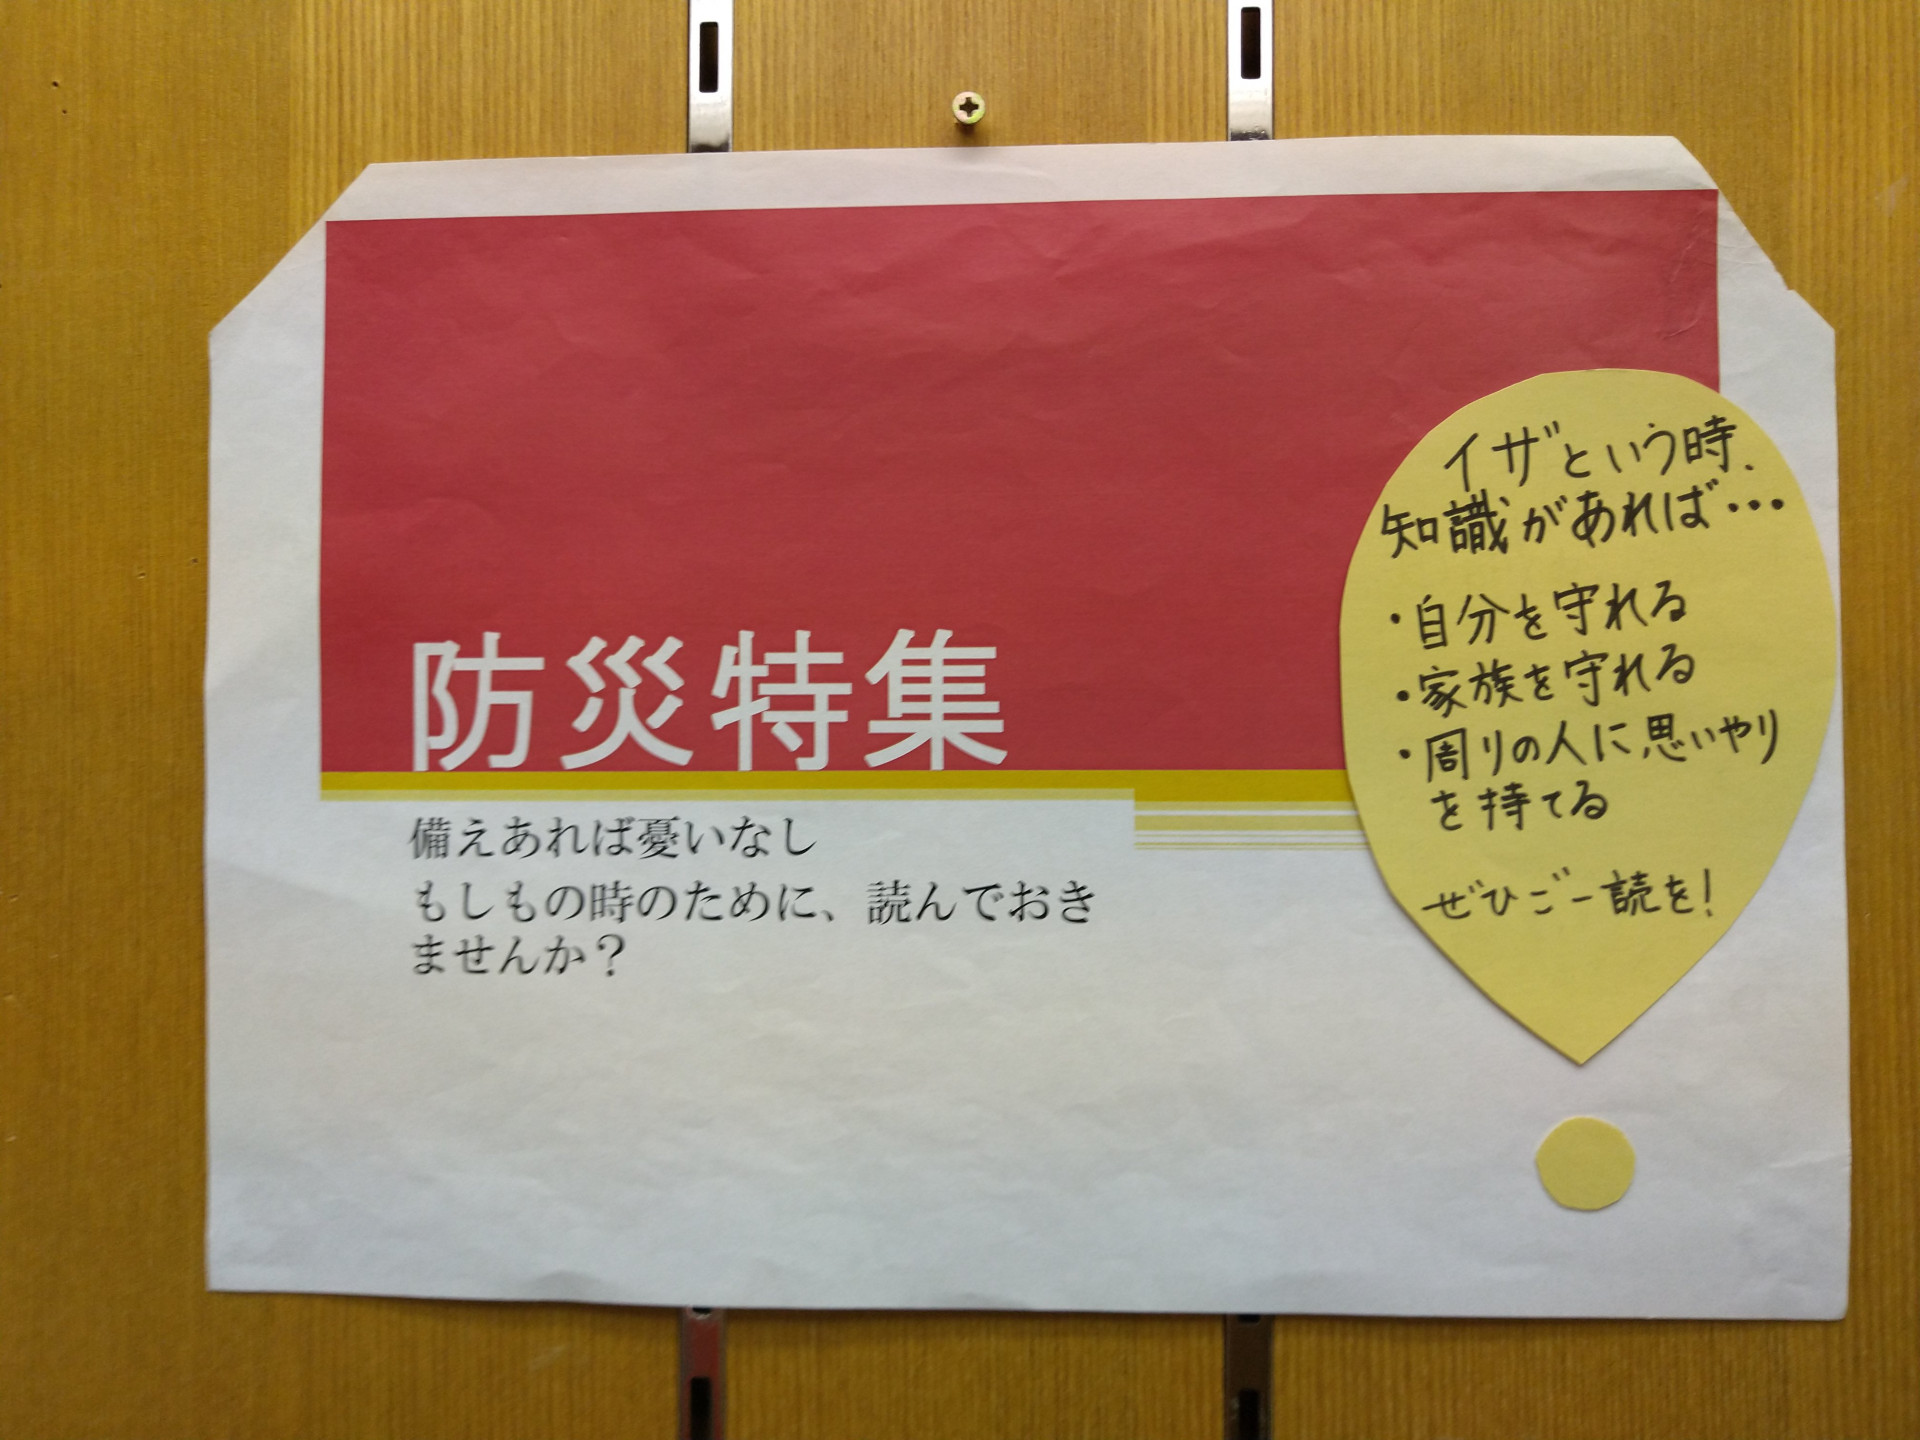 防災特集
備えあれば憂いなし
もしもの時のために、読んでおき
ませんか？
イザという時、
知識があれば・・・
・自分を守れる
・家族を守れる
・周りの人に思いやり
を持てる
ぜひご一読を！